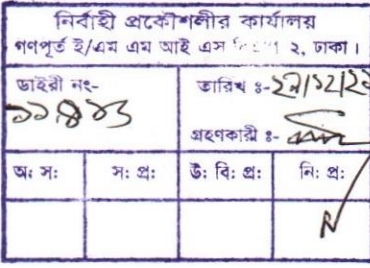 নির্বাহী প্রকৌশলীর কার্যালয়
গণপূর্ত ই/এম এম আই এস ২, ঢাকা।
ডাইরী নং-
তারিখ ঃ-
গ্রহণকারী ঃ-
অঃ সঃ সঃ প্রঃ উঃ বিঃ প্রঃ নিঃ প্রঃ